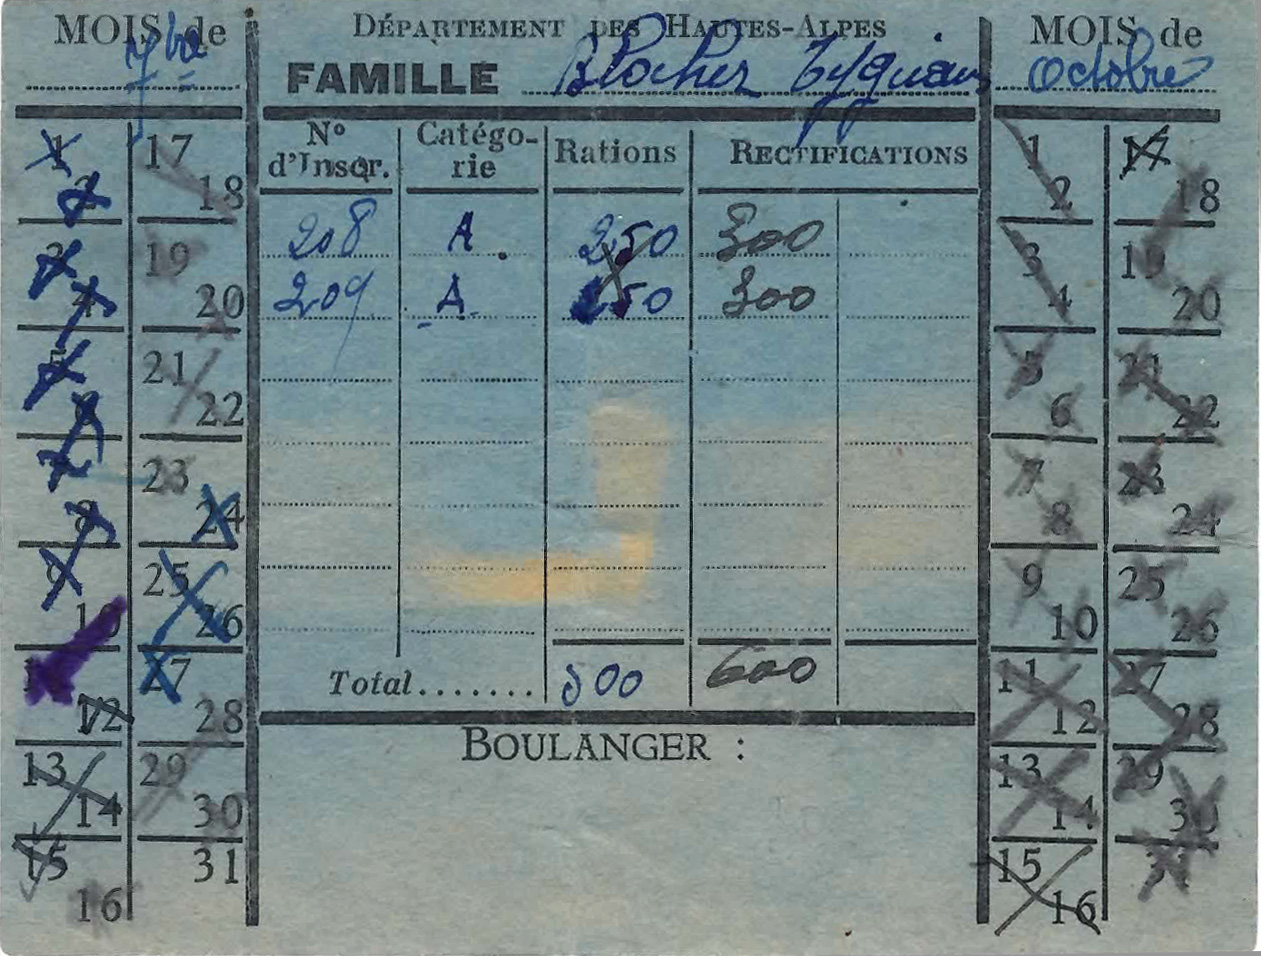 MOIS de
7bre
DÉPARTEMENT DES HAUTES-ALPES
FAMILLE Blocher
MOIS de
Octobre
1 17
2 18
3 19
4 20
5 21
6 22
7 23
8 24
9 25
10 26
11 27
12 28
13 29
14 30
15 31
16
N° d'Inscr. Catégorie Rations RECTIFICATIONS
208 A 250 300
209 A 250 300
Total....... 500 600
BOULANGER :
1 17
2 18
3 19
4 20
5 21
6 22
7 23
8 24
9 25
10 26
11 27
12 28
13 29
14 30
15 31
16